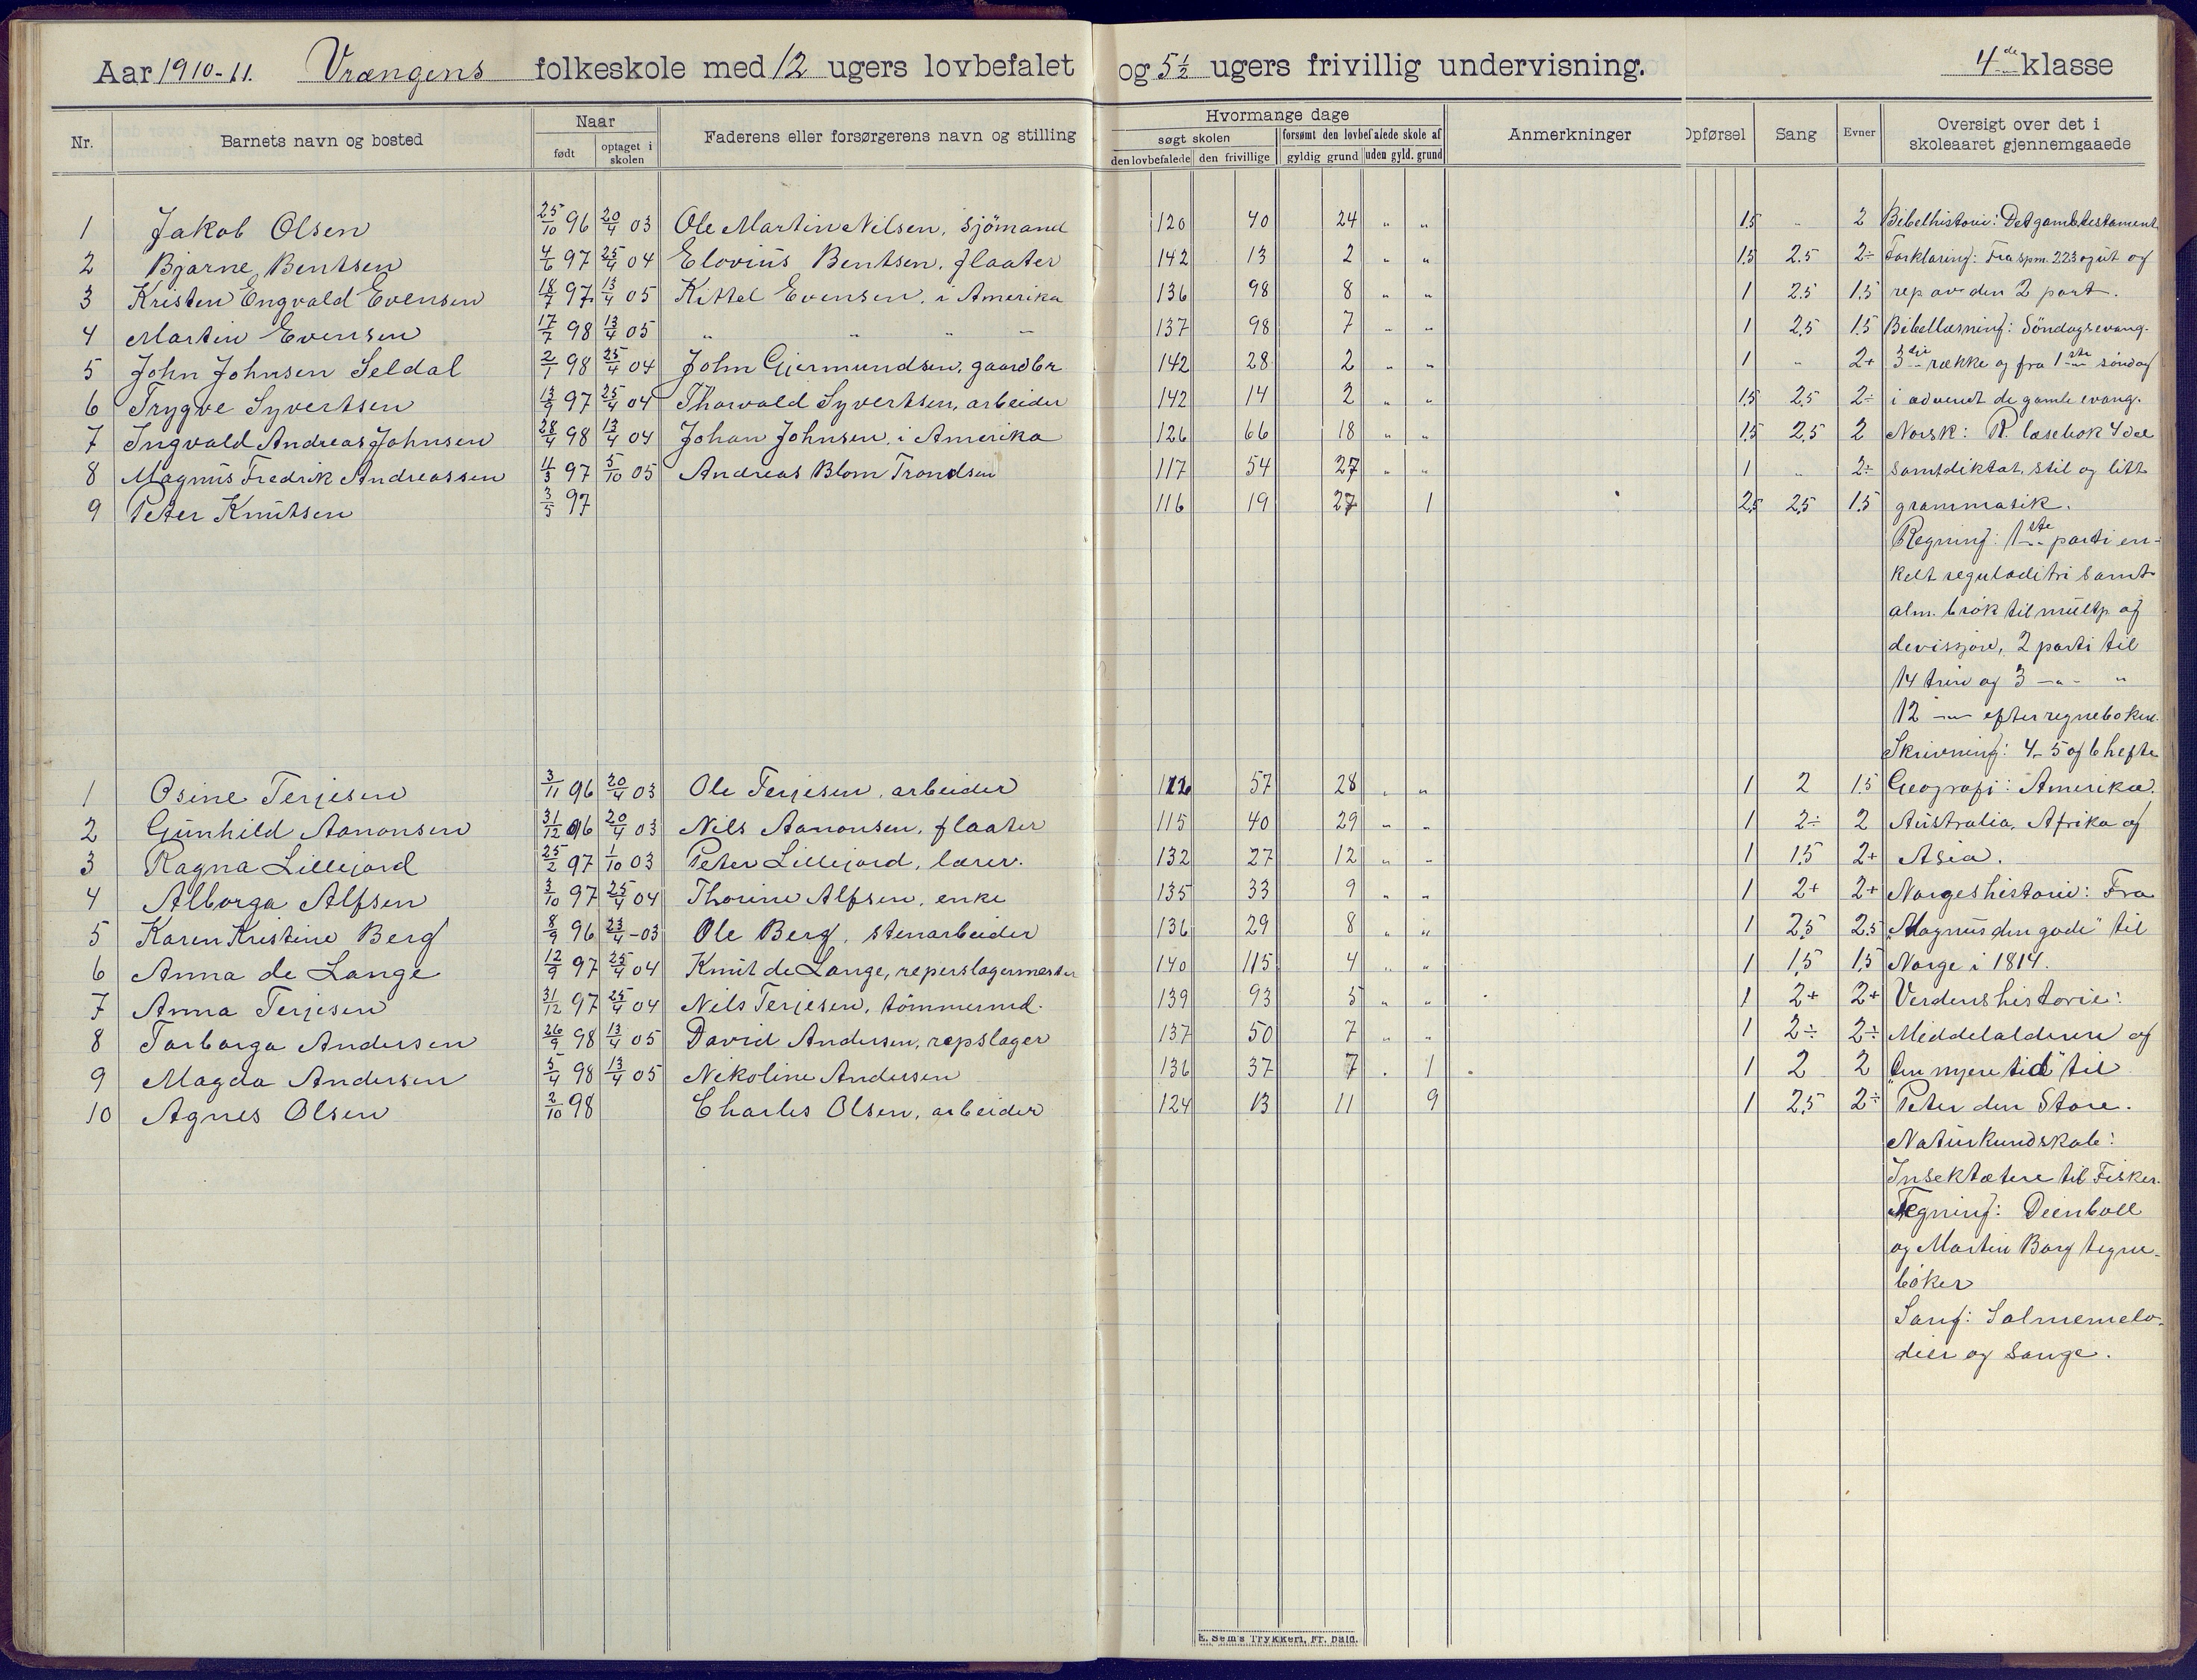 Aar 1910-11. Vrængens folkeskole med 12 ugers lovbefalet og 5½ ugers frivillig undervisning. 4de klasse
Nr. Barnets navn og bosted Naar født optaget i skolen Faderens eller forsørgerens navn og stilling Hvormange dage søgt skolen den lovbefalede den frivillige forsømt den lovbefalede skole af gyldig grund uden gyld. grund Anmerkninger Opførsel Sang Evner Oversigt over det i skoleaaret gjennemgaaede
1 Jakob Olsen 25/10 96 20/4 03 Ole Martin Nilsen, sjømand 120 40 24 " " 1.5 - 2 Bibelhistorie: Det gamle testament
2 Bjarne Bentsen 4/6 97 25/4 04 Elovius Bentsen, flaater 142 13 2 " " 1.5 2.5 2÷ Forklaring: Fra spm. 223 og ut og
3 Kristen Engvald Evensen 18/7 97 13/4 05 Kittel Evensen, i Amerika 136 98 8 " " 1 2.5 1.5 rep av den 2 part.
4 Martin Evensen 17/7 98 13/4 05 " " " " 137 98 7 " " 1 2,5 1.5 Bibellæsning: Søndagsevang-
5 John Johnsen Seldal 2/1 98 25/4 04 John Gjermundsen, gaardbr 142 28 2 " " 1 - 2+ 3die række og fra 1ste søndag
6 Trygve Syvertsen 13/9 97 25/4 04 Thorvald Syvertsen, arbeider 142 14 2 " " 1.5 2.5 2÷ i advent de gamle evang.
7 Ingvald Andreas Johnsen 28/4 98 13/4 04 Johan Johnsen, i Amerika 126 66 18 " " 1.5 2,5 2 Norsk: R. læsebok 4 del
8 Magnus Fredrik Andreassen 11/3 97 5/10 05 Andreas Blom Trondsen 117 54 27 " " 1 " 2÷ samt diktat, stil og litt
9 Peter Knutsen 3/5 97 116 19 27 1 2,5 2,5 1.5 grammatik.
Regning: 1ste parti en-
kelt reguladitri samt
alm. brøk til multp. og
devisjon, 2 parti til
14 trin og 3 -"- "
12 -"- efter regneboken.
Skrivning: 4-5 og 6 hefte
1 Osine Terjesen 3/11 96 20/4 03 Ole Terjesen, arbeider 112 57 28 " " 1 2 1.5 Geografi: Amerika.
2 Gunhild Aanonsen 31/12 96 20/4 03 Nils Aanonsen, flaater 115 40 29 " " 1 2÷ 2 Australia, Afrika og
3 Ragna Lillejord 25/2 97 1/10 03 Peter Lillejord, lærer. 132 27 12 " " 1 1.5 2+ Asia.
4 Alborga Alfsen 3/10 97 25/4 04 Thorine Alfsen, enke 135 33 9 " " 1 2+ 2+ Norgeshistorie: Fra
5 Karen Kristine Berg 8/9 96 23/4-03 Ole Berg, stenarbeider 136 29 8 " " 1 2,5 2.5 "Magnus den gode" til
6 Anna de Lange 12/9 97 25/4 04 Knut de Lange, reperslagermester 140 115 4 " " 1 1,5 1,5 Norge i 1814.
7 Anna Terjesen 31/12 97 25/4 04 Nils Terjesen, tømmermd. 139 93 5 " " 1 2+ 2+ Verdenshistorie:
8 Torborga Andersen 26/9 98 13/4 05 David Andersen, repslager 137 50 7 " " 1 2÷ 2÷ Middelalderen og
9 Magda Andersen 5/4 98 13/4 05 Nikoline Andersen 136 37 7 . 1 1 2 2 "den nyere tid" til
10 Agnes Olsen 2/10 98 Charles Olsen, arbeider 124 13 11 9 1 2,5 2÷ Peter den Store.
Naturkundskab:
Insektætere til Fisker.
Tegning: Deenboll
og Morten Borg tegne-
bøker
Sang: Salmemelo-
dier og sange.
E. Sem's Trykkeri, Fr. hald.